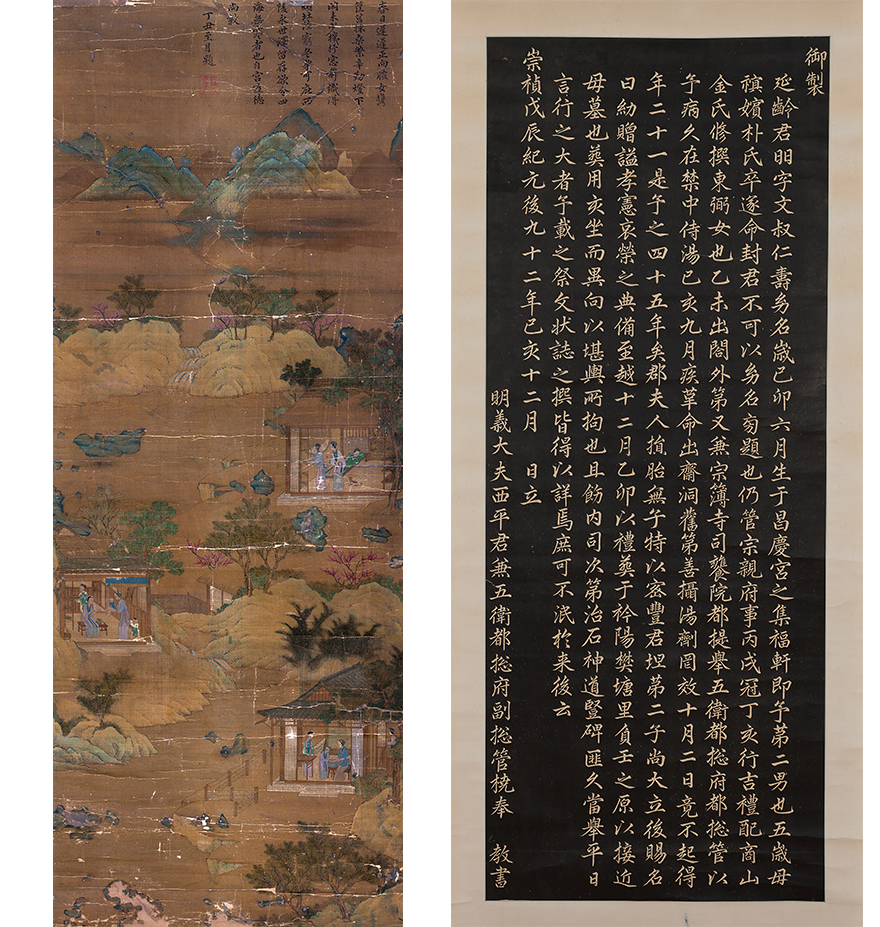 春日遲遲正向女
筐筥採桑勤燈下
未機杼窓前織得
陵水世留存欲令四
海覽者也自宮德
尚敦
丁丑至月題
御製
延齡君昍字文叔仁壽㓜名歲己卯六月生于昌慶宮之集福軒即予第二男也五歲母
䄙嬪朴氏卒遂命封君不可以㓜名旁題也仍管宗親府事丙戌冠丁亥行吉禮配商山
金氏修撰東弼女也乙未出閤外第又兼宗簿寺司饔院都提舉五衛都揔府都揔管以
予病久在禁中侍湯己亥九月疾革命出齋洞舊第善攝湯劑罔效十月二日竟不起得
年二十一是予之四十五年矣郡夫人捐胎無子特以密豐君坦第二子尚大立後賜名
曰紭贈諡孝憲哀榮之典備至越十二月乙卯以禮葬于衿陽樊塘里負壬之原以接近
母墓也葬用亥坐而巽向以堪輿所拘也且飭内司次第治石神道豎碑匪久當舉平日
言行之大者予載之祭文狀誌之撰皆得以詳焉庶可不泯於来後云
崇禎戊辰紀元後九十二年己亥十二月 日立
明義大夫西平君兼五衛都揔府副揔管橈奉 教書